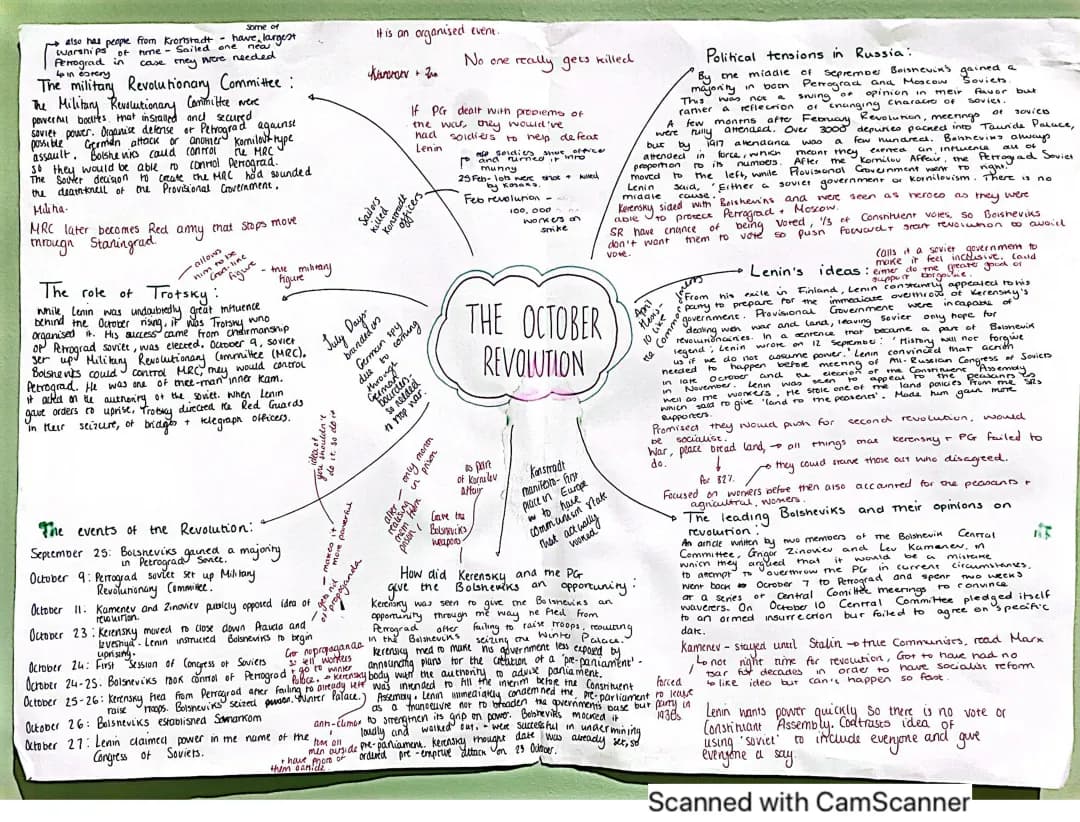 some of
also has people from Kronstadt - have largest
warships of time - Sailed one near
Petrograd in case they were needed
It is an organised event.
Kamenev + Zin
No one really gets killed
The Military Revolutionary Committee:
The Military Revolutionary Committee were
powerful bodies that installed and secured
soviet power. Organise defense of Petrograd against
possible German attack or another Kornilov-type
assault. Bolsheviks could control the MRC
so they would be able to control Petrograd.
The Soviet decision to create the MRC had sounded
the deathknell of the Provisional Government.
Militia.
MRC later becomes Red army that stops move
through Stalingrad.
If PG dealt with problems of
the war, they would've
had soldiers to help defeat
Lenin
and turned it into
mutiny
25 Feb - lots were shot + killed
by Kosaks.
Feb revolution -
100,000
workers on
strike
Sailors
killed
Kronstadt
officers
Political tensions in Russia:
By the middle of September Bolsheviks gained a
majority in both Petrograd and Moscow Soviets.
This was not a swing of opinion in their favor but
rather a reflection of changing character of soviet.
A few months after February Revolution, meetings of soviets
were fully attended. Over 3000 deputies packed into Tauride Palace,
but by 1917 attendance was a few hundred. Bolsheviks always
attended in force, which meant they earned an influence out of
proportion to its numbers. After the Kornilov Affair, the Petrograd Soviet
moved to the left, while Provisional Government went to right
Lenin said, 'Either a soviet government or Kornilovism. There is no
middle course.
Kerensky sided with Bolsheviks and were seen as heroes as they were
able to protect Petrograd + Moscow.
SR have chance of being voted, 1/3 of Constituent votes, so Bolsheviks
don't want them to vote so push forward + start revolution to avoid
vote.
The role of Trotsky:
allows
him to be
front line
figure
- true military
figure
While, Lenin was undoubtedly great influence
behind the October rising, it was Trotsky who
organised it. His success came from chairmanship
of Petrograd soviet, was elected. October 9, soviet
set up Military Revolutionary Committee (MRC).
Bolsheviks could control MRC, they would control
Petrograd. He was one of three-man inner team.
It acted on the authority of the soviet. When Lenin
gave orders to uprise, Trotsky directed the Red Guards
in their seizure, of bridges + telegraph offices.
THE OCTOBER
REVOLUTION
July Days-
boarders
German spy
through
due to coming
German
boarders
so needed
to stop war.
April
Thesis -
10 like
the Commandments
Lenin's ideas:
Calls it a soviet government to
make it feel inclusive. Could
either do the greater good or
support bargoutise.
From his exile in Finland, Lenin constantly appealed to his
party to prepare for the immediate overthrow of Kerensky's
government. Provisional Government were incapable of
dealing with war and land, leaving Soviet only hope for
revolutionaries. In a sentence that became a part of Bolshevik
legend; Lenin wrote on 12 September: 'History will not forgive
us if we do not assume power'. Lenin convinced that action
needed to happen before meeting of All-Russian Congress of Soviets
in late October and the election of the Constituent Assembly
in November. Lenin was seen to appeal to the peasants as
well as the workers. He stole one of the land policies from the SRs
which said to give 'land to the peasents'. Made him gain more
supporters.
Promised they would push for second revolution, would
be socialist.
War, peace bread land, → all things that Kerensky + PG failed to
do.
they could starve those out who disagreed.
Focused on workers before then also accounted for the peasants +
agricultural workers.
idea of
you shouldn't
do it, so do it
makes it
more powerful
propaganda
after
realising
them from
prison
only month
in prison
as part
of Kornilov
affair
Gave the
Bolsheviks
weapons
Kronstadt
manifesto- first
place in Europe
to have
communist state
that actually
worked
The events of the Revolution:
September 25: Bolsheviks gained a majority
in Petrograd Soviet.
October 9: Petrograd soviet set up Military
Revolutionary Committee.
October 11: Kamenev and Zinoviev publicly opposed idea of
revolution.
October 23: Kerensky moved to close down Pravda and
Izvestiya. Lenin instructed Bolsheviks to begin
uprising.
October 24: First Session of Congress of Soviets
October 24-25: Bolsheviks took control of Petrograd
October 25-26: Kerensky fled from Petrograd after failing to
raise troops. Bolsheviks seized Winter Palace.
October 26: Bolsheviks established Sovnarkom
October 27: Lenin claimed power in the name of the
Congress of Soviets.
Got no propaganda
so tell workers
+ go to winter
Palace. → Kerensky
already left
anti-climax
from all
men outside
+ have more of
them outside.
How did Kerensky and the PG
give the Bolsheviks an opportunity:
Kerensky was seen to give the Bolsheviks an
opportunity through the way he fled from
Petrograd after failing to raise troops, resulting
in the Bolsheviks seizing the Winter Palace.
Kerensky tried to make his government less exposed by
announcing plans for the creation of a 'pre-parliament'-
body with the authority to advise parliament.
was intended to fill the interim before the Constituent
Assembly. Lenin immediately condemned the pre-parliament
as a manoeuvre not to broaden the governments base but
to strengthen its grip on power. Bolsheviks mocked it
loudly and walked out, + were successful in undermining
pre-parliament. Kerensky thought date was already set, so
ordered pre-emptive attack on 23 October.
The leading Bolsheviks and their opinions on
revolution:
An article written by two members of the Bolshevik Central
Committee, Grigor Zinoviev and Lev Kamenev, in
which they argued that it would be a mistake
to attempt to overthrow the PG in current circumstances.
Went back October 7 to Petrograd and spent two weeks
at a series of Central Comittee meetings to convince
waverers. On October 10 Central Committee pledged itself
to an armed insurrection but failed to agree on specific
date.
Kamenev - stayed until Stalin → true Communists, read Marx
not right time for revolution, Got to have had no
tsar for decades in order to have socialist reform
like idea but can't happen so fast.
forced
to leave
party in
1930s.
Lenin wants power quickly so there is no vote or
Constituant Assembly. Contrasts idea of
using 'soviet' to include everyone and give
everyone a say.
Scanned with CamScanner